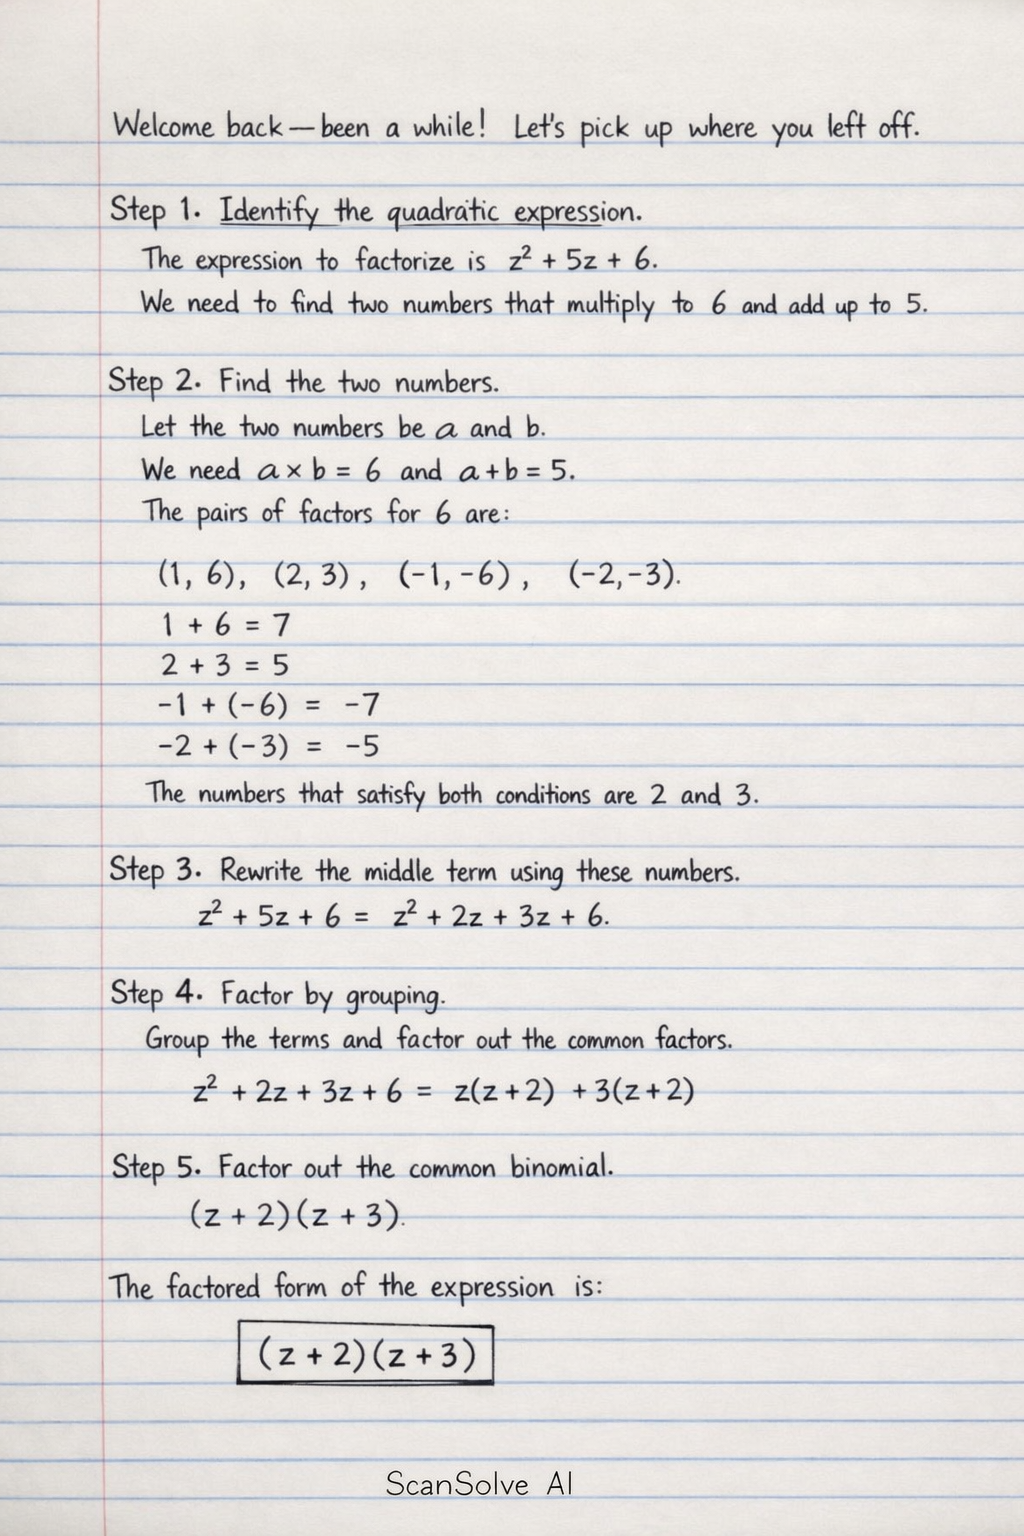 Welcome back — been a while! Let's pick up where you left off.
Step 1. Identify the quadratic expression.
The expression to factorize is z² + 5z + 6.
We need to find two numbers that multiply to 6 and add up to 5.
Step 2. Find the two numbers.
Let the two numbers be a and b.
We need a × b = 6 and a + b = 5.
The pairs of factors for 6 are:
(1, 6), (2, 3), (-1, -6), (-2, -3).
1 + 6 = 7
2 + 3 = 5
-1 + (-6) = -7
-2 + (-3) = -5
The numbers that satisfy both conditions are 2 and 3.
Step 3. Rewrite the middle term using these numbers.
z² + 5z + 6 = z² + 2z + 3z + 6.
Step 4. Factor by grouping.
Group the terms and factor out the common factors.
z² + 2z + 3z + 6 = z(z + 2) + 3(z + 2)
Step 5. Factor out the common binomial.
(z + 2)(z + 3).
The factored form of the expression is:
(z + 2)(z + 3)
ScanSolve AI